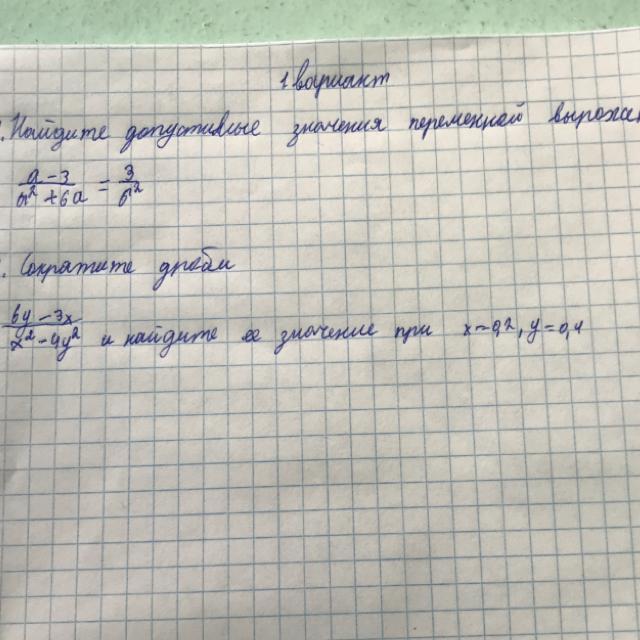 1 вариант
. Найдите допустимые значения переменной выраже
a - 3 / a² + 6a = 3 / 6²
. Сократите дроби
6y - 3x / x² - 4y² и найдите ее значение при x = 0,2, y = 0,4